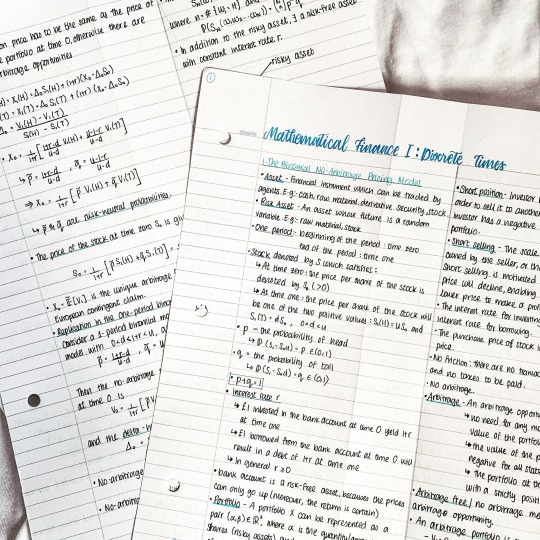 on price has to be the same as the price of
portfolio at time 0, otherwise there are
arbitrage opportunities
= X₁(H) = Δ₀S₁(H) + (1+r)(X₀ - Δ₀S₀)
= X₁(T) = Δ₀S₁(T) + (1+r)(X₀ - Δ₀S₀)
Δ₀ = V₁(H) - V₁(T) / S₁(H) - S₁(T)
X₀ = 1/1+r [ 1+r-d/u-d V₁(H) + u-1-r/u-d V₁(T) ]
↳ p̃ = 1+r-d/u-d , q̃ = u-1-r/u-d
⇒ X₀ = 1/1+r [ p̃ V₁(H) + q̃ V₁(T) ]
↳ p̃ & q̃ are risk-neutral probabilities.
• The price of the stock at time zero S₀ is giv
S₀ = 1/1+r [ p̃ S₁(H) + q̃ S₁(T)
• X₀ = Ẽ[V₁] is the unique arbitrage
European contingent claim.
• Replication in the one-period bino
Consider a 1-period binomial m
model with 0<d<1+r<u, a
p̃ = 1+r-d/u-d , q̃ = u
Then the no-arbitrage
at time 0 is
V₀ = 1/1+r [ p̃V
and the delta-h
Δ₀ =
• No-arbitrage
• No-arbit
where n = # {ωᵢ = H} and
• In addition to the risky asset, ∃ a risk-free asset
with constant interest rate r.
risky asset
①
Mathematical Finance I : Discrete Times
1-The Binomial No-Arbitrage Pricing Model
• Asset - Financial instrument which can be traded by
agents. E.g: cash, raw material, derivative security, stock
• Risk Asset - An asset whose future is a random
variable. E.g: raw material, stock
• One period: beginning of the period : time zero
end of the period : time one
• Stock denoted by S which satisfies :
↳ At time zero : the price per share of the stock is
denoted by S₀ (>0)
↳ At time one : the price per share of the stock will
be one of the two positive values : S₁(H) = uS₀ and
S₁(T) = dS₀ , 0<d<u
• p = the probability of head
↳ P(S₁ = S₀u) = p ∈ (0,1)
• q = the probability of tail
↳ P(S₁ = S₀d) = q ∈ (0,1)
• p+q=1
• Interest rate r
↳ £1 invested in the bank account at time 0 yield 1+r
at time one
↳ £1 borrowed from the bank account at time 0 will
result in a debt of 1+r at time one
↳ In general r≥0
• bank account is a risk-free asset, because the prices
can only go up (moreover, the return is certain)
• Portfolio - A portfolio X can be represented as a
pair (α,β) ∈ R², where α is the quantity/amou
shares (risky assets) an
• Short position - Investor b
order to sell it to another
investor has a negative
portfolio.
• Short selling - The sale
owned by the seller, or th
Short selling is motivated
price will decline, enabling
lower price to make a prof
• The interest rate for investin
interest rate for borrowing.
• The purchase price of stock is
price.
• No friction : there are no transac
and no taxes to be paid.
• No arbitrage.
• Arbitrage - An arbitrage opportu
↳ no need for any mo
value of the portfoli
↳ the value of the port
negative for all stat
↳ The portfolio at t
with a strictly posit
• Arbitrage free / no arbitrage m
arbitrage opportunity.
• An arbitrage portfolio is